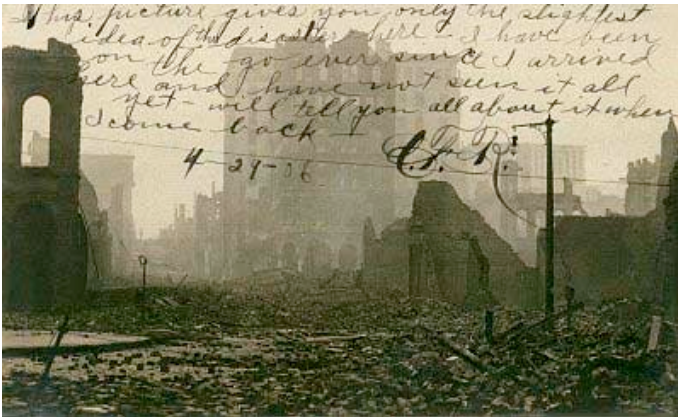 This picture gives you only the slightest
idea of the disaster here - I have been
on the go ever since I arrived
here and have not seen it all
yet - will tell you all about it when
I come back -
4-29-06 C.F.R.